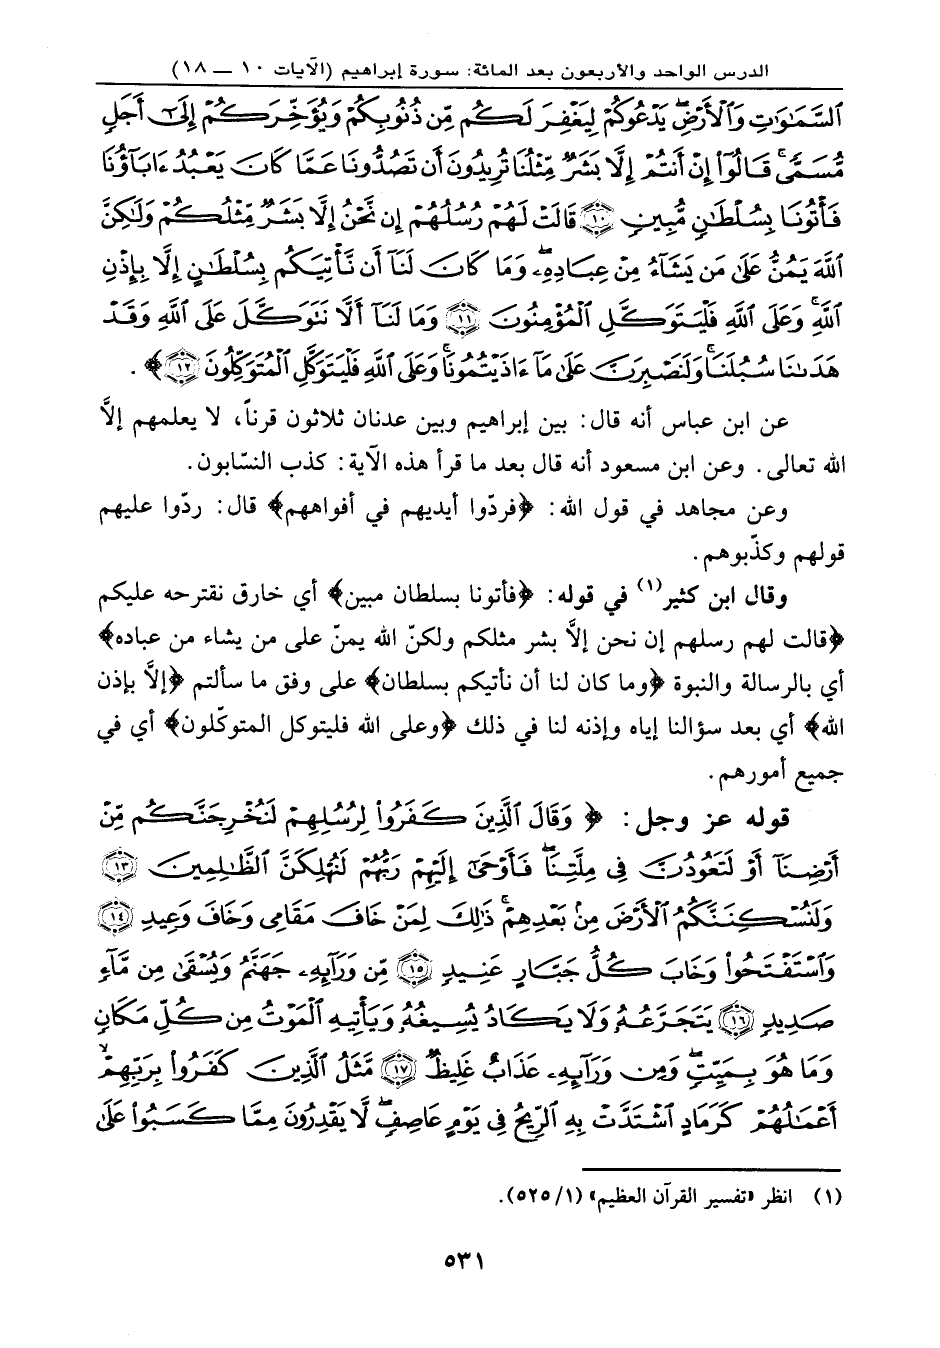 الدرس الواحد والأربعون بعد المائة: سورة إبراهيم (الآيات ١٠ — ١٨)
ٱلسَّمَٰوَٰتِ وَٱلْأَرْضِۖ يَدْعُوكُمْ لِيَغْفِرَ لَكُم مِّن ذُنُوبِكُمْ وَيُؤَخِّرَكُمْ إِلَىٰٓ أَجَلٍ
مُّسَمًّىۚ قَالُوٓا۟ إِنْ أَنتُمْ إِلَّا بَشَرٌ مِّثْلُنَا تُرِيدُونَ أَن تَصُدُّونَا عَمَّا كَانَ يَعْبُدُ ءَابَآؤُنَا
فَأْتُونَا بِسُلْطَٰنٍ مُّبِينٍ ١٠ قَالَتْ لَهُمْ رُسُلُهُمْ إِن نَّحْنُ إِلَّا بَشَرٌ مِّثْلُكُمْ وَلَٰكِنَّ
ٱللَّهَ يَمُنُّ عَلَىٰ مَن يَشَآءُ مِنْ عِبَادِهِۦۖ وَمَا كَانَ لَنَآ أَن نَّأْتِيَكُم بِسُلْطَٰنٍ إِلَّا بِإِذْنِ
ٱللَّهِۚ وَعَلَى ٱللَّهِ فَلْيَتَوَكَّلِ ٱلْمُؤْمِنُونَ ١١ وَمَا لَنَآ أَلَّا نَتَوَكَّلَ عَلَى ٱللَّهِ وَقَدْ
هَدَىٰنَا سُبُلَنَاۚ وَلَنَصْبِرَنَّ عَلَىٰ مَآ ءَاذَيْتُمُونَاۚ وَعَلَى ٱللَّهِ فَلْيَتَوَكَّلِ ٱلْمُتَوَكِّلُونَ ١٢﴾ .
عن ابن عباس أنه قال: بين إبراهيم وبين عدنان ثلاثون قرناً، لا يعلمهم إلَّا
الله تعالى. وعن ابن مسعود أنه قال بعد ما قرأ هذه الآية: كذب النسّابون.
وعن مجاهد في قول الله: ﴿فردّوا أيديهم في أفواههم﴾ قال: ردّوا عليهم
قولهم وكذّبوهم.
وقال ابن كثير(١) في قوله: ﴿فأتونا بسلطان مبين﴾ أي خارق نقترحه عليكم
﴿قالت لهم رسلهم إن نحن إلَّا بشر مثلكم ولكنّ الله يمنّ على من يشاء من عباده﴾
أي بالرسالة والنبوة ﴿وما كان لنا أن نأتيكم بسلطان﴾ على وفق ما سألتم ﴿إلَّا بإذن
الله﴾ أي بعد سؤالنا إياه وإذنه لنا في ذلك ﴿وعلى الله فليتوكل المتوكّلون﴾ أي في
جميع أمورهم.
قوله عز وجل: ﴿ وَقَالَ ٱلَّذِينَ كَفَرُوا۟ لِرُسُلِهِمْ لَنُخْرِجَنَّكُم مِّنْ
أَرْضِنَآ أَوْ لَتَعُودُنَّ فِى مِلَّتِنَاۖ فَأَوْحَىٰٓ إِلَيْهِمْ رَبُّهُمْ لَنُهْلِكَنَّ ٱلظَّٰلِمِينَ ١٣
وَلَنُسْكِنَنَّكُمُ ٱلْأَرْضَ مِنۢ بَعْدِهِمْۚ ذَٰلِكَ لِمَنْ خَافَ مَقَامِى وَخَافَ وَعِيدِ ١٤
وَٱسْتَفْتَحُوا۟ وَخَابَ كُلُّ جَبَّارٍ عَنِيدٍ ١٥ مِّن وَرَآئِهِۦ جَهَنَّمُ وَيُسْقَىٰ مِن مَّآءٍ
صَدِيدٍ ١٦ يَتَجَرَّعُهُۥ وَلَا يَكَادُ يُسِيغُهُۥ وَيَأْتِيهِ ٱلْمَوْتُ مِن كُلِّ مَكَانٍ
وَمَا هُوَ بِمَيِّتٍۖ وَمِن وَرَآئِهِۦ عَذَابٌ غَلِيظٌ ١٧ مَّثَلُ ٱلَّذِينَ كَفَرُوا۟ بِرَبِّهِمْۖ
أَعْمَٰلُهُمْ كَرَمَادٍ ٱشْتَدَّتْ بِهِ ٱلرِّيحُ فِى يَوْمٍ عَاصِفٍۖ لَّا يَقْدِرُونَ مِمَّا كَسَبُوا۟ عَلَىٰ
(١) انظر «تفسير القرآن العظيم» (١/٥٢٥).
٥٣١